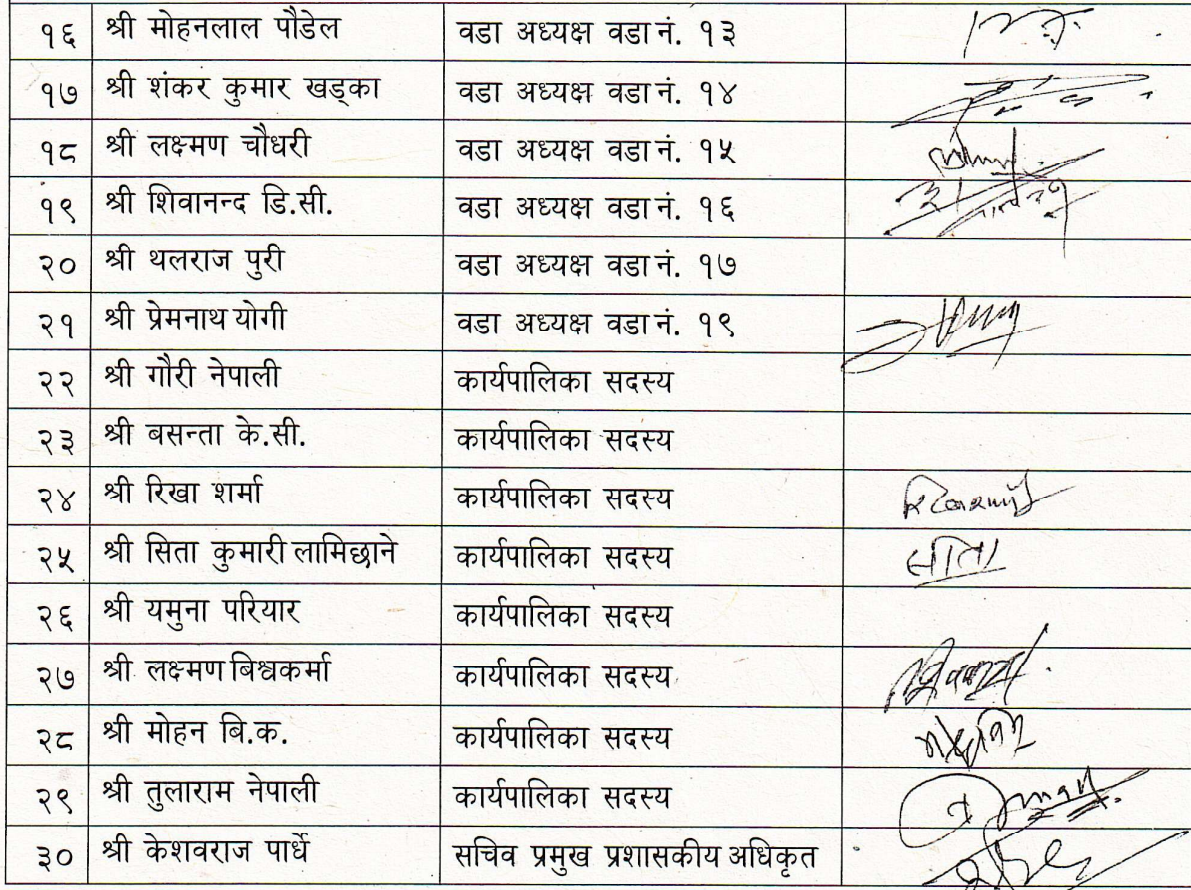 १६ श्री मोहनलाल पौडेल वडा अध्यक्ष वडा नं. १३
१७ श्री शंकर कुमार खड्का वडा अध्यक्ष वडा नं. १४
१८ श्री लक्ष्मण चौधरी वडा अध्यक्ष वडा नं. १५
१९ श्री शिवानन्द डि.सी. वडा अध्यक्ष वडा नं. १६
२० श्री थलराज पुरी वडा अध्यक्ष वडा नं. १७
२१ श्री प्रेमनाथ योगी वडा अध्यक्ष वडा नं. १९
२२ श्री गौरी नेपाली कार्यपालिका सदस्य
२३ श्री बसन्ता के.सी. कार्यपालिका सदस्य
२४ श्री रिखा शर्मा कार्यपालिका सदस्य
२५ श्री सिता कुमारी लामिछाने कार्यपालिका सदस्य सीता
२६ श्री यमुना परियार कार्यपालिका सदस्य
२७ श्री लक्ष्मण बिश्वकर्मा कार्यपालिका सदस्य
२८ श्री मोहन बि.क. कार्यपालिका सदस्य
२९ श्री तुलाराम नेपाली कार्यपालिका सदस्य
३० श्री केशवराज पार्धे सचिव प्रमुख प्रशासकीय अधिकृत